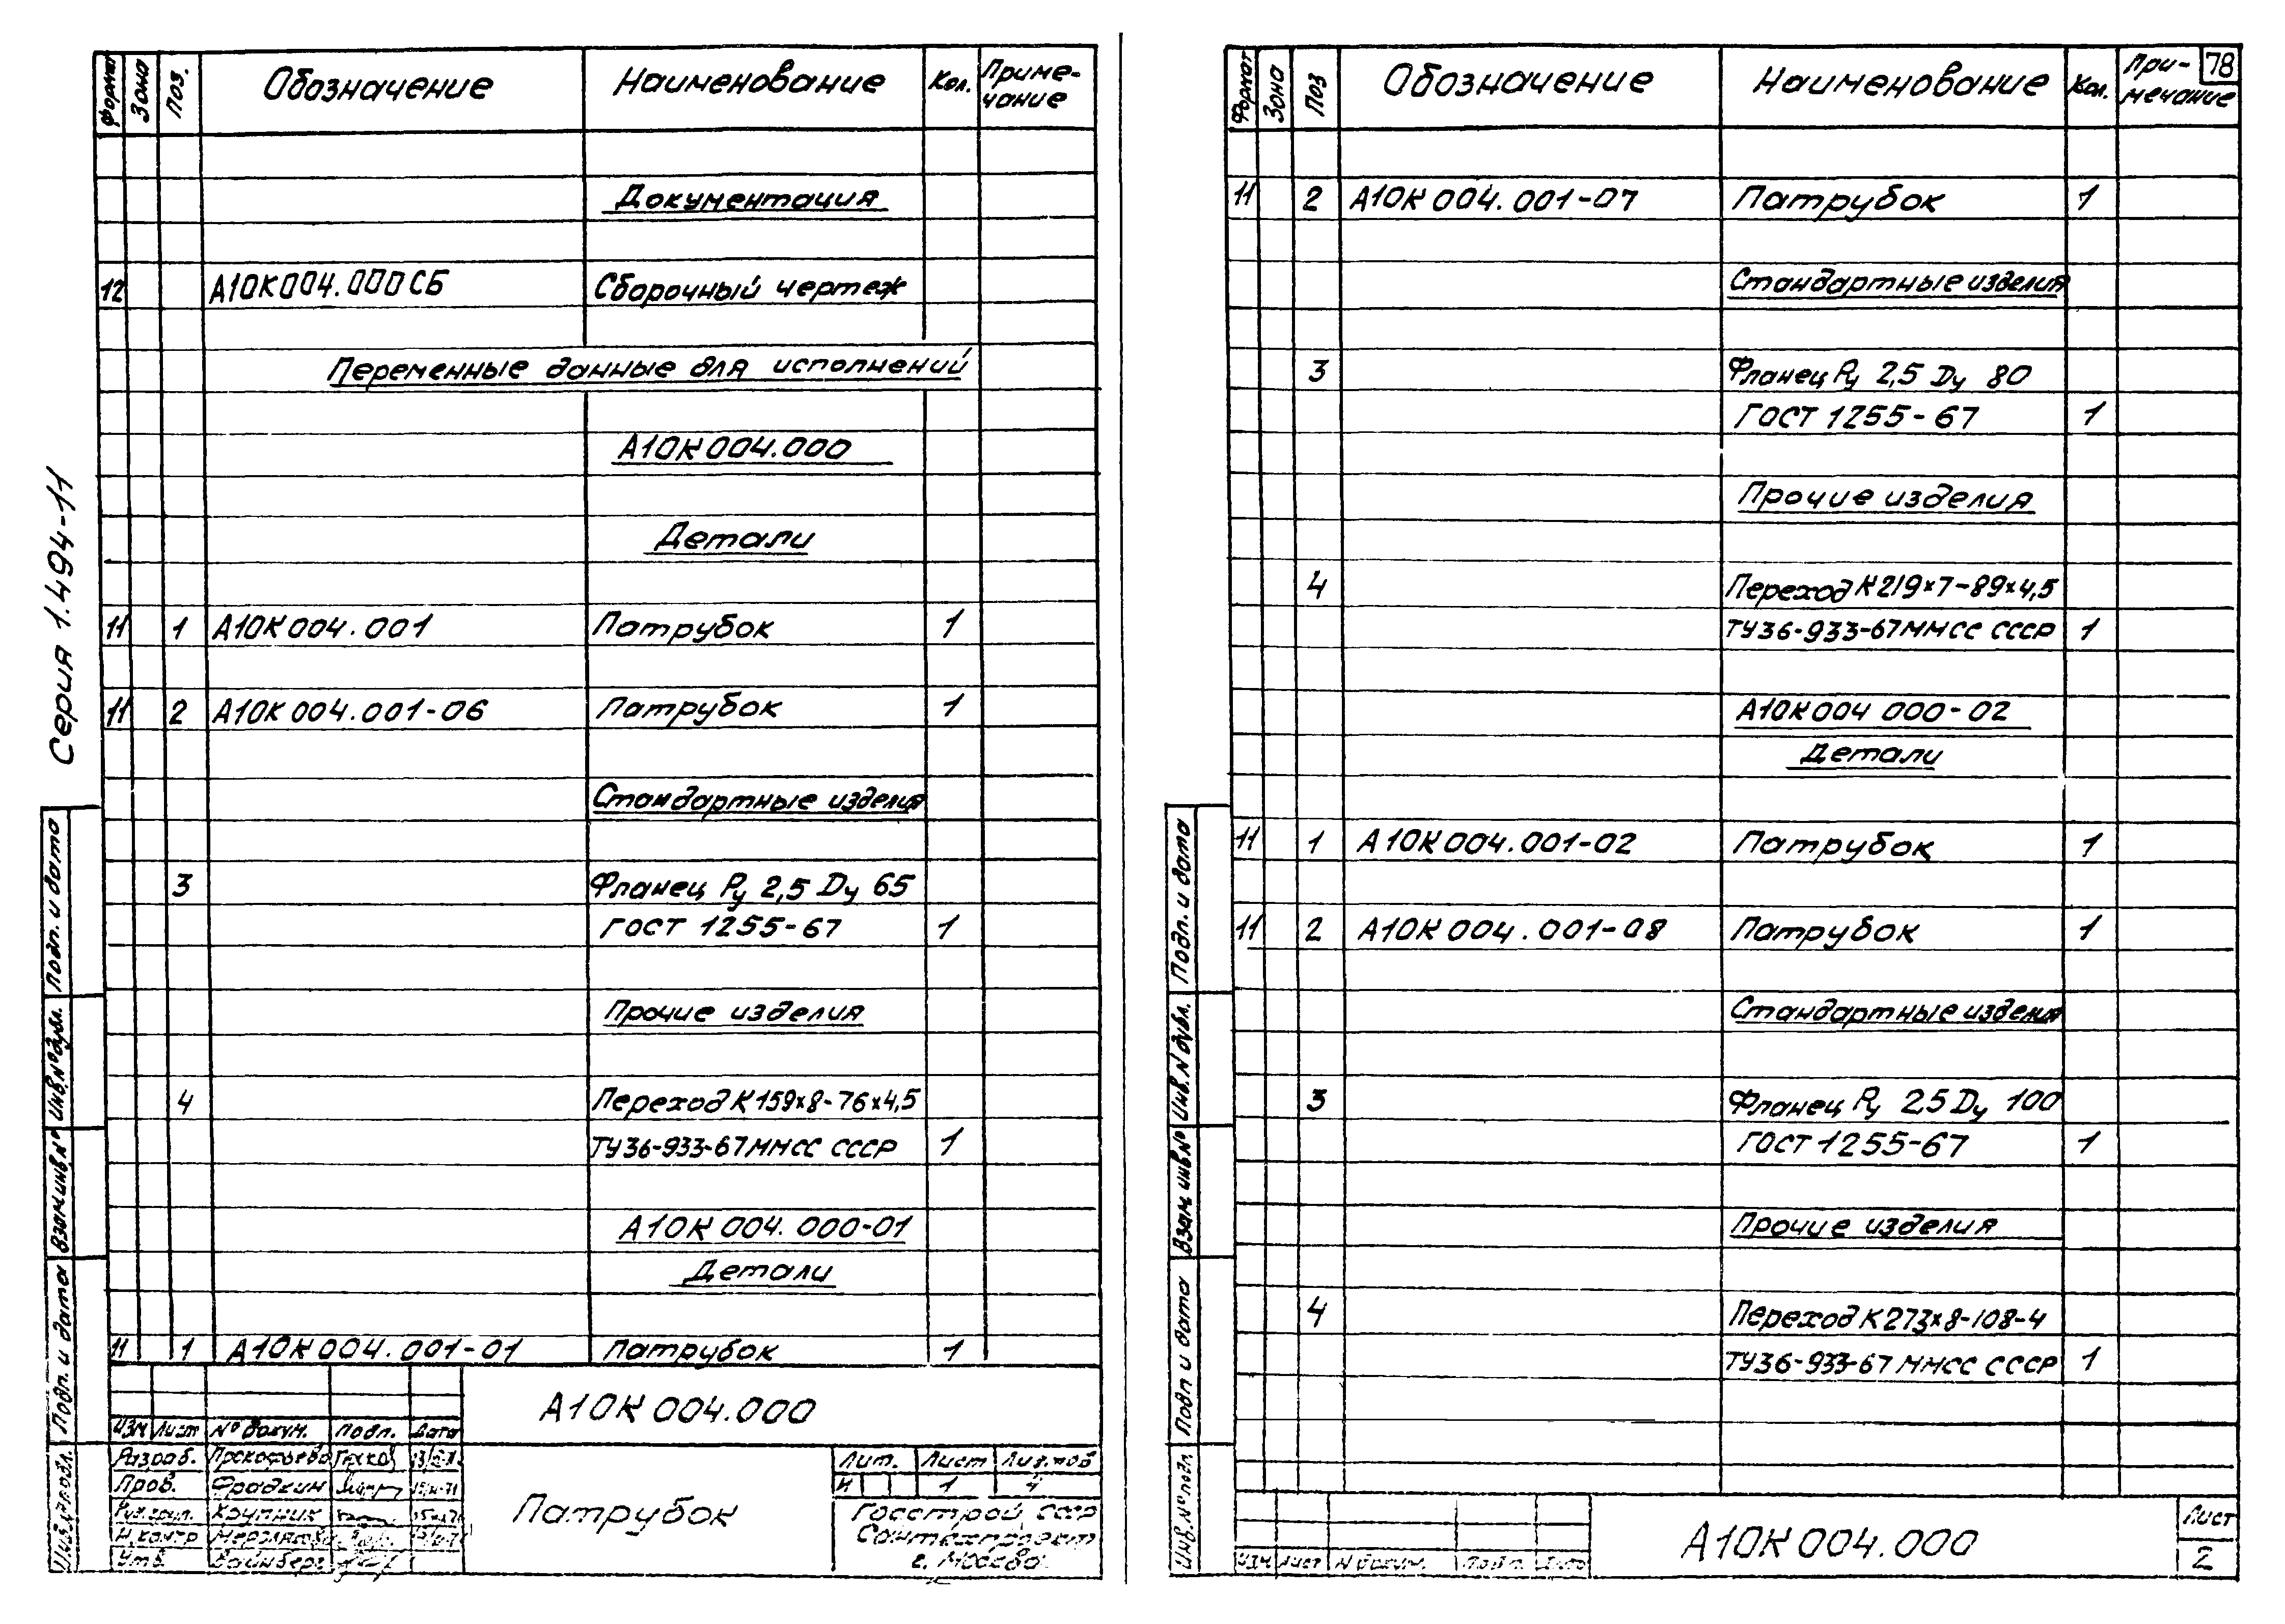 Формат Зона Поз. Обозначение Наименование Кол. Приме-
чание
Документация
12 А10К004.000СБ Сборочный чертеж
Переменные данные для исполнений
А10К004.000
Детали
11 1 А10К004.001 Патрубок 1
11 2 А10К004.001-06 Патрубок 1
Стандартные изделия
3 Фланец Ру 2,5 Ду 65
ГОСТ 1255-67 1
Прочие изделия
4 Переход К159х8-76х4,5
ТУ36-933-67ММСС СССР 1
А10К004.000-01
Детали
11 1 А10К004.001-01 Патрубок 1
Серия 1.494-11
Подп. и дата
Инв.№дубл.
Взам.инв№
Подп. и дата
Инв.№подл.
А10К004.000
Изм Лист № докум. Подп. Дата
Разраб. Прокофьева
Пров. Фрадкин
Рук.груп. Крупник
Н.контр
Утв. Вайнберг
Патрубок
Лит. Лист Листов
И 1 4
Госстрой СССР
Сантехпроект
г. Москва
Формат Зона Поз Обозначение Наименование Кол. При-
мечание
78
11 2 А10К004.001-07 Патрубок 1
Стандартные изделия
3 Фланец Ру 2,5 Ду 80
ГОСТ 1255-67 1
Прочие изделия
4 Переход К219х7-89х4,5
ТУ36-933-67ММСС СССР 1
А10К004 000-02
Детали
11 1 А10К004.001-02 Патрубок 1
11 2 А10К004.001-08 Патрубок 1
Стандартные изделия
3 Фланец Ру 2,5 Ду 100
ГОСТ 1255-67 1
Прочие изделия
4 Переход К273х8-108-4
ТУ36-933-67 ММСС СССР 1
Подп. и дата
Инв.№дубл.
Взам инв№
Подп и дата
Инв.№подл
Изм Лист № докум. Подп. Дата
А10К004.000
Лист
2